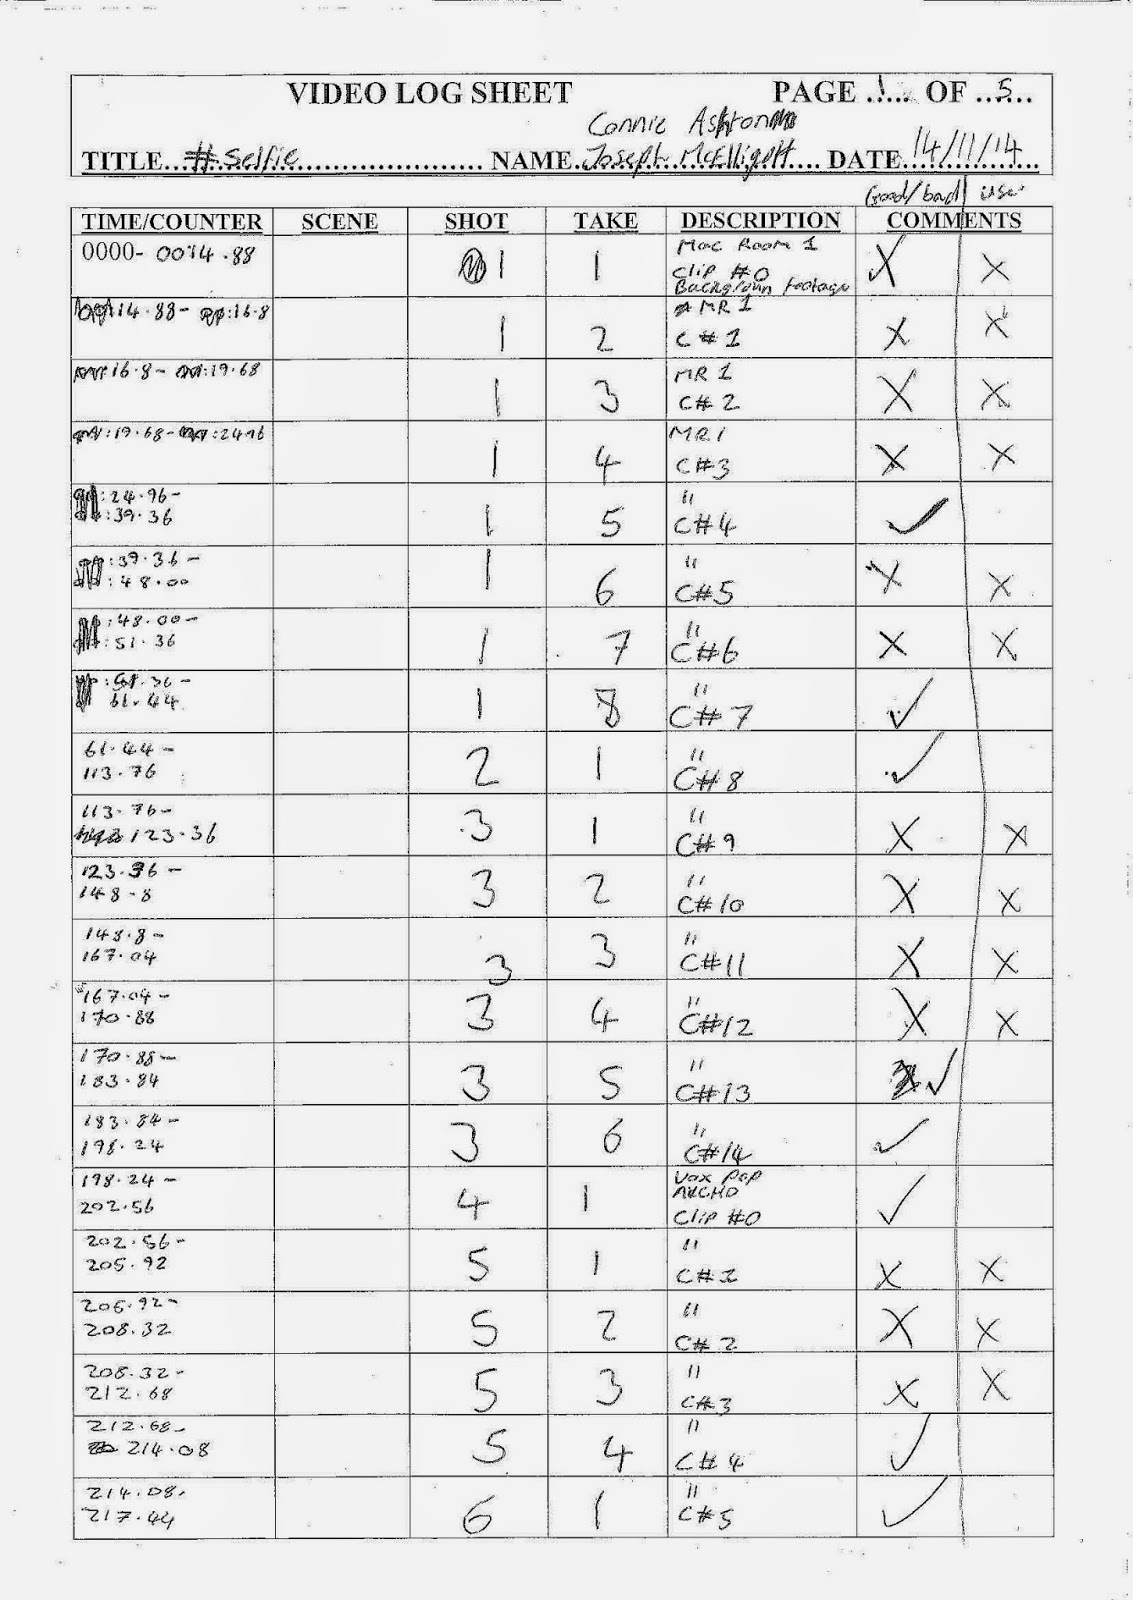 VIDEO LOG SHEET PAGE .1.. OF ..5...
Connie Ashton
TITLE...#Selfie..................... NAME..Joseph McElligott.... DATE..14/11/14..
Good/bad use
TIME/COUNTER SCENE SHOT TAKE DESCRIPTION COMMENTS
0000- 0014.88 1 1 Mac Room 1 X X
Clip #0
Background footage
14.88- :16.8 1 2 MR 1 X X
C#1
:16.8- :19.68 1 3 MR 1 X X
C#2
:19.68- :24.96 1 4 MR1 X X
C#3
:24.96- 1 5 " ✓
:39.36 C#4
:39.36- 1 6 " X X
:48.00 C#5
:48.00- 1 7 " X X
:51.36 C#6
:51.36- 1 8 " ✓
61.44 C#7
61.44- 2 1 " ✓
113.76 C#8
113.76- 3 1 " X X
123.36 C#9
123.36- 3 2 " X X
148.8 C#10
148.8- 3 3 " X X
167.04 C#11
167.04- 3 4 " X X
170.88 C#12
170.88- 3 5 " ✓
183.84 C#13
183.84- 3 6 " ✓
198.24 C#14
198.24- 4 1 Vox pop ✓
202.56 Clip #0
202.56- 5 1 " X X
205.92 C#1
205.92- 5 2 " X X
208.32 C#2
208.32- 5 3 " X X
212.68 C#3
212.68- 5 4 " ✓
214.08 C#4
214.08- 6 1 " ✓
217.44 C#5